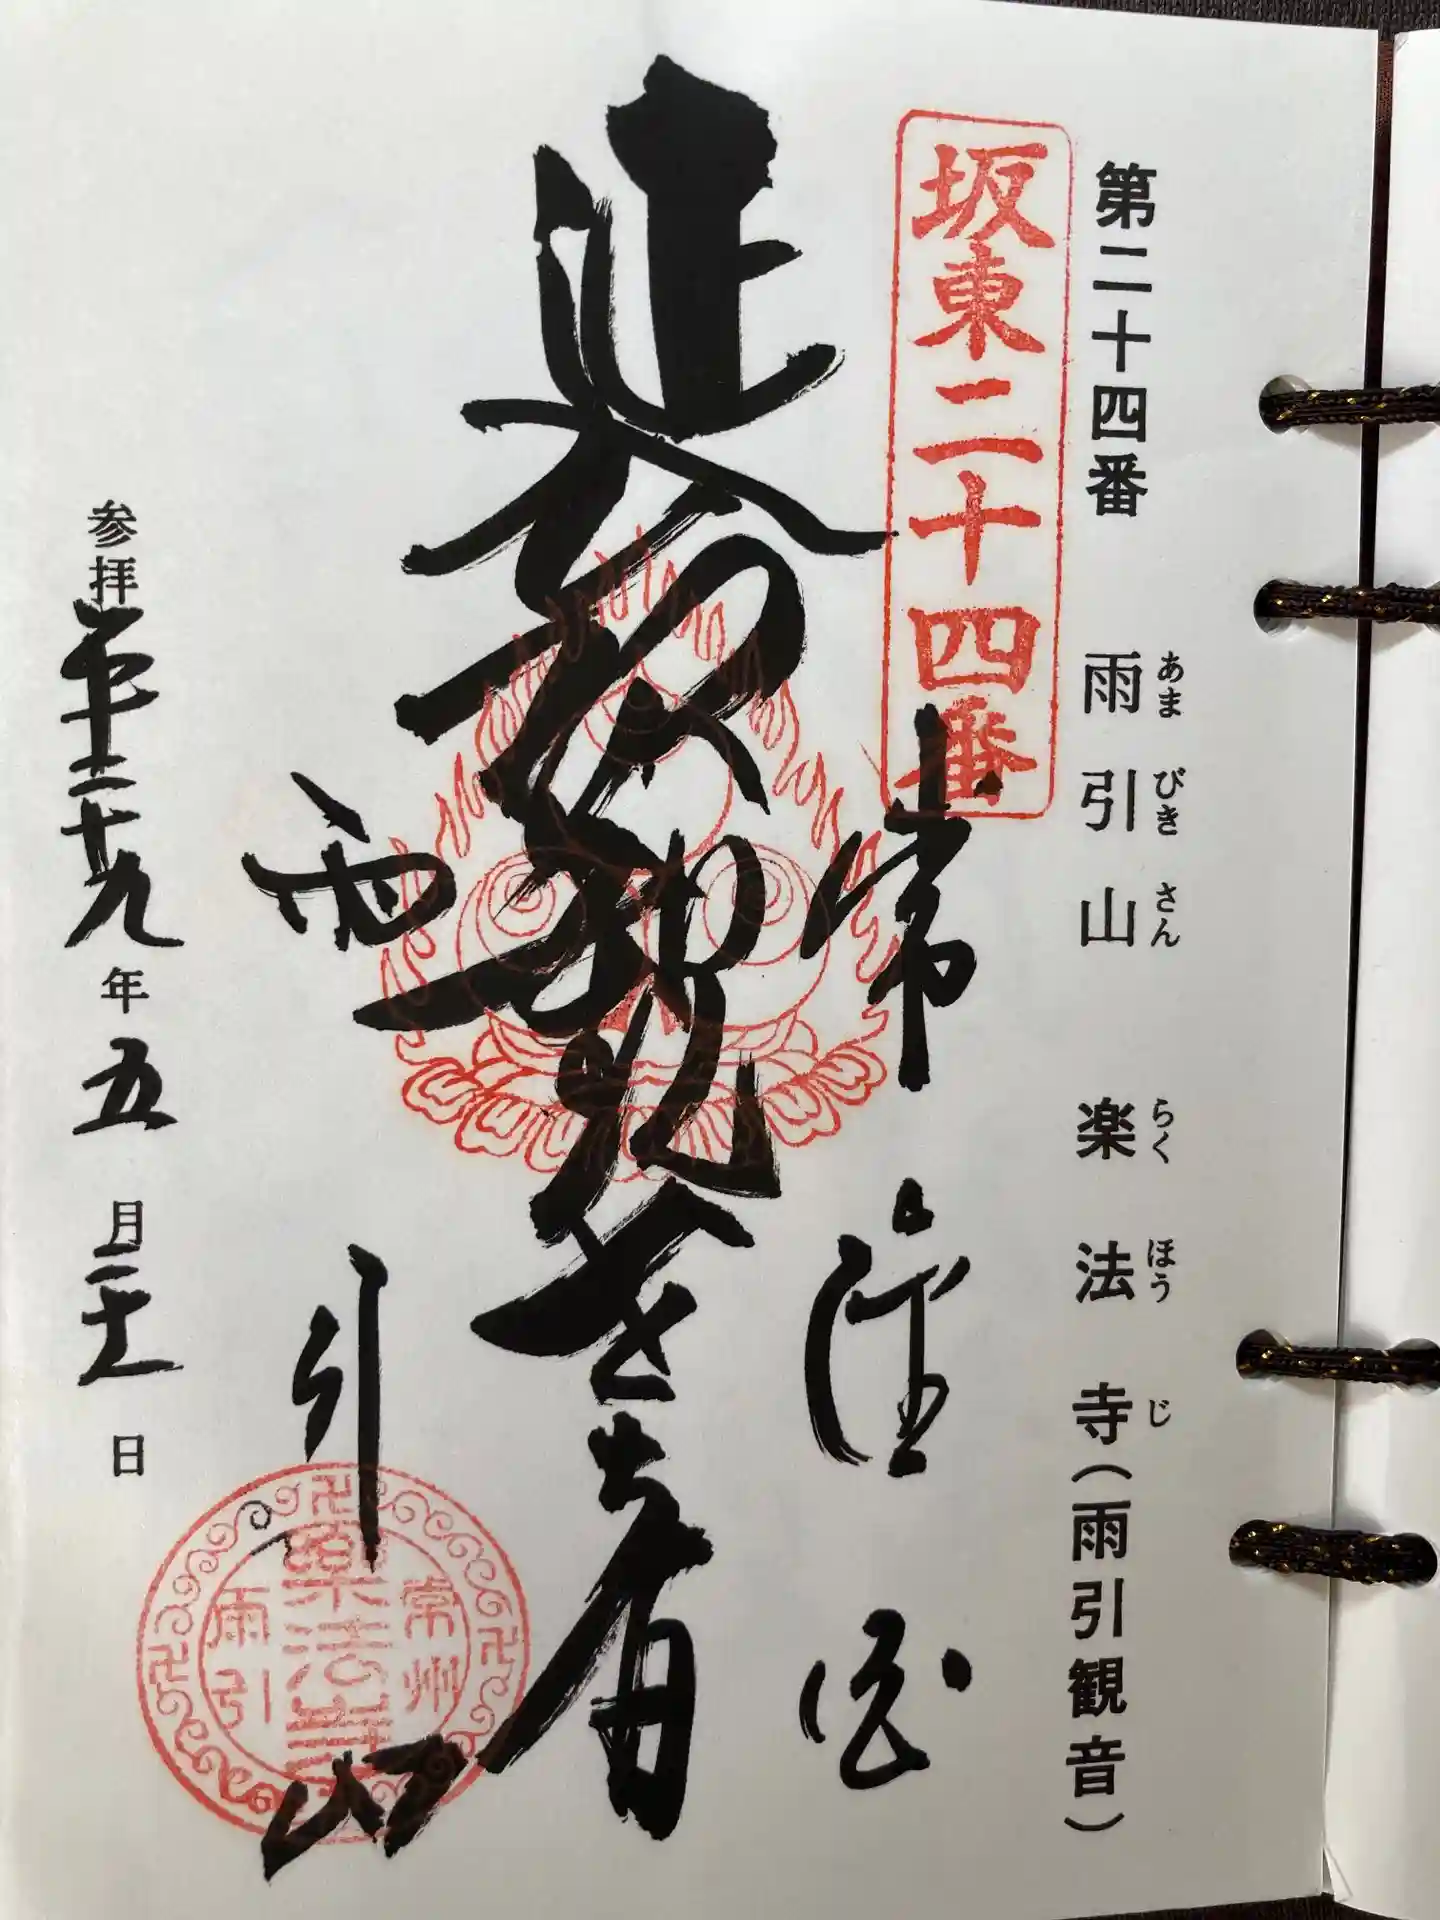 第二十四番 雨引山 楽法寺(雨引観音)
あまびきさん らくほうじ
坂東二十四番
常陸国
延命観世音
雨引山
常州
樂法寺
雨引
参拝平成二十九年五月二十日